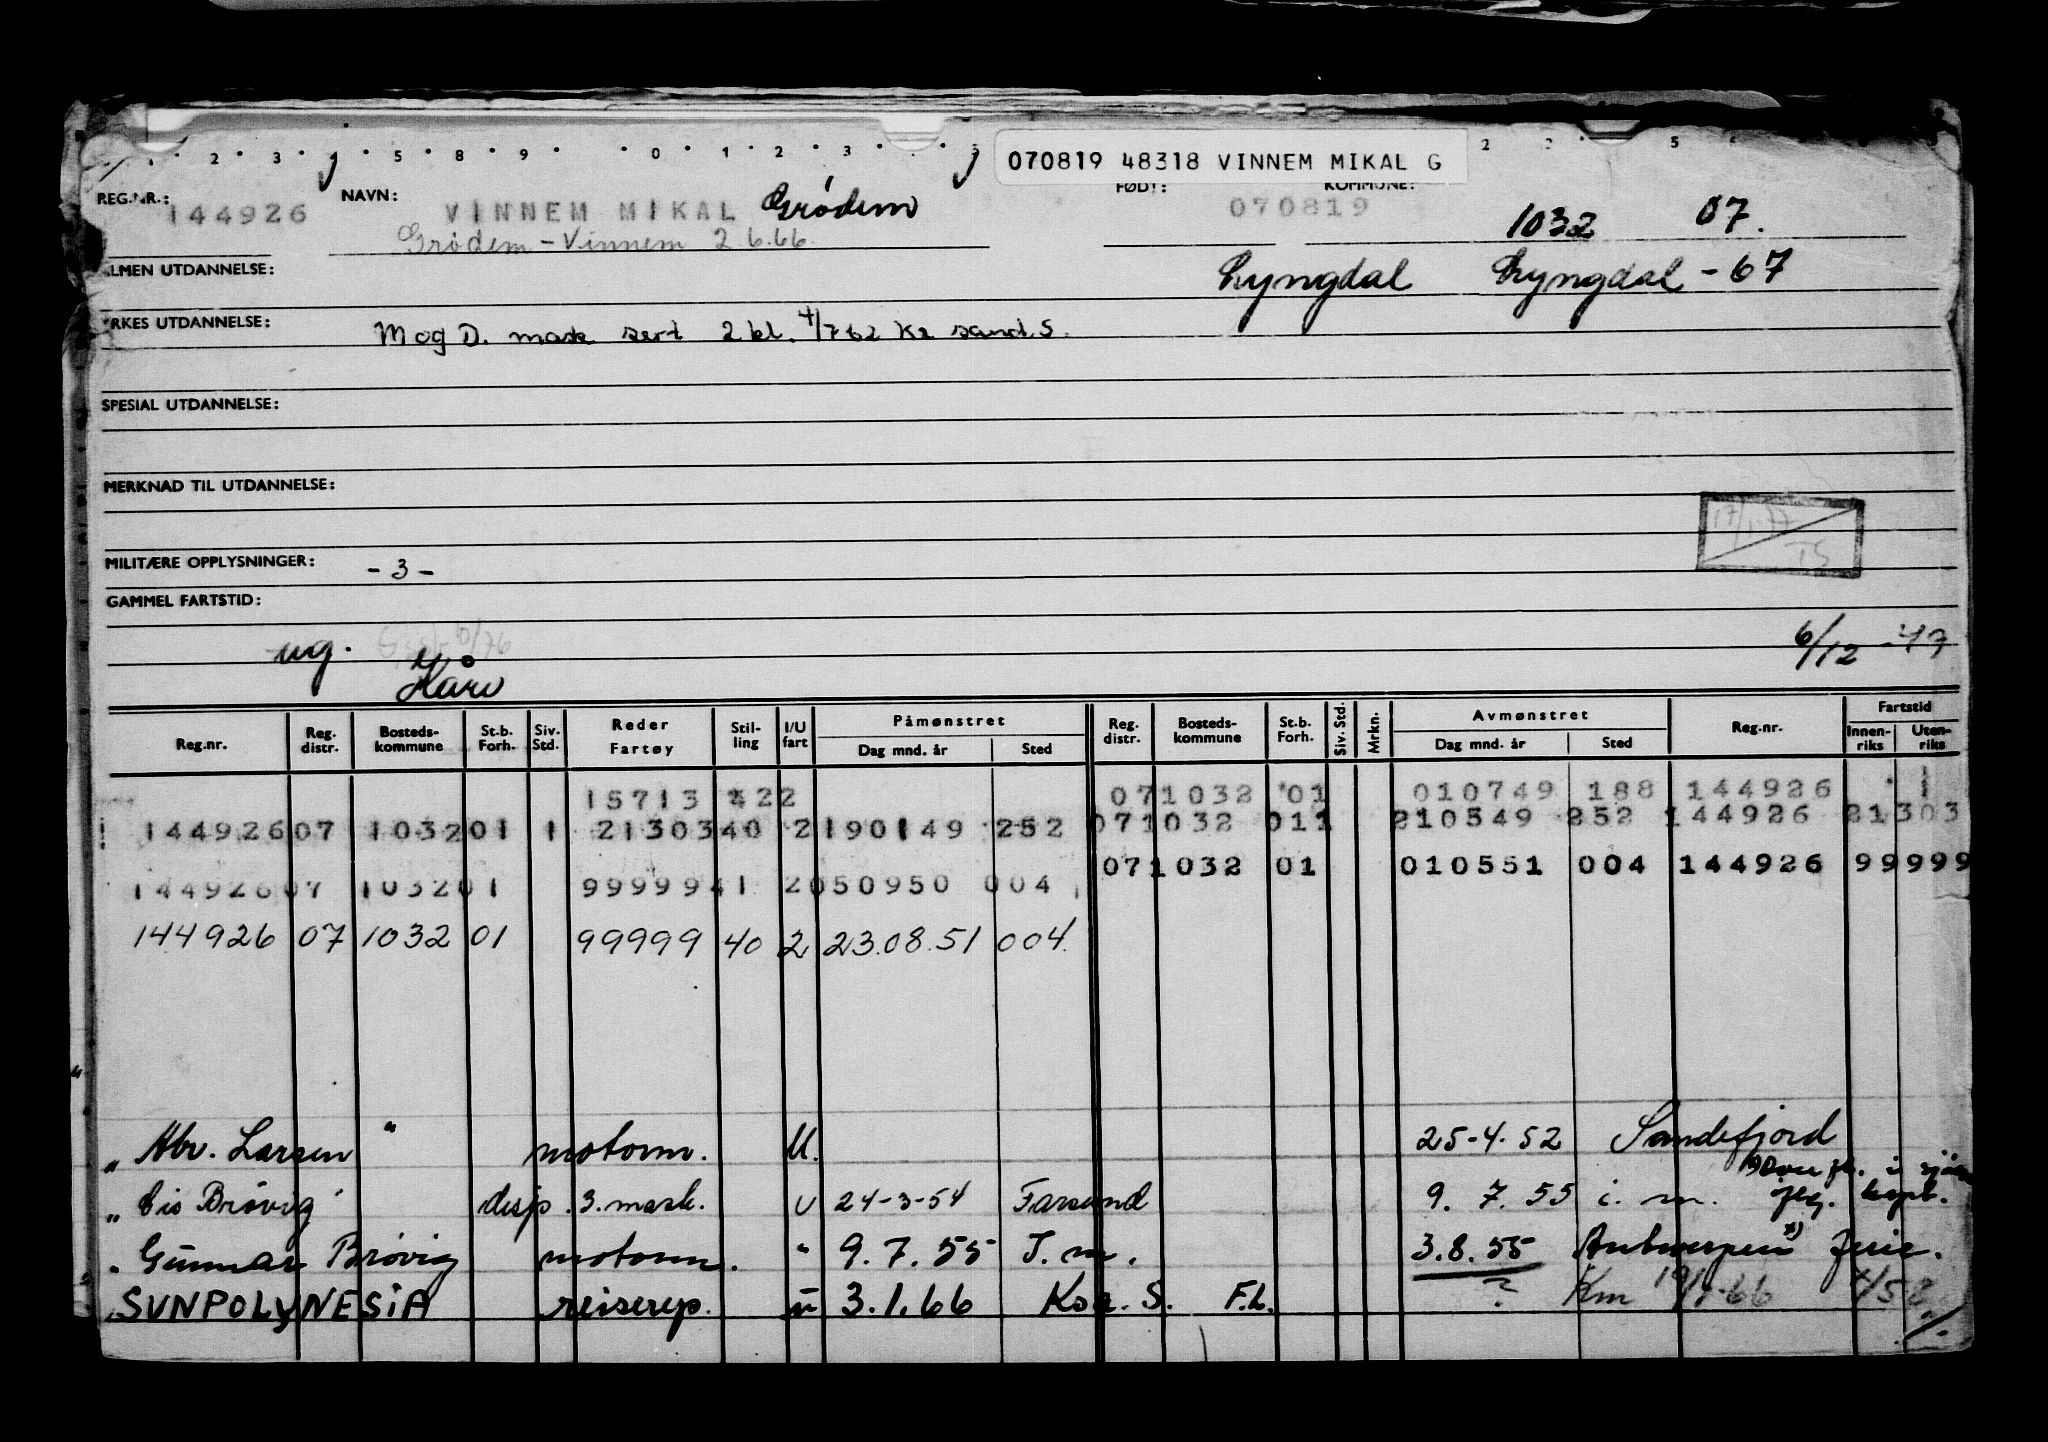 070819 48318 VINNEM MIKAL G
REG.NR.: 144926 NAVN: VINNEM MIKAL Grödem FØDT: 070819 KOMMUNE: 1032 07.
Grödem - Vinnem 2.6.66.
LMEN UTDANNELSE: Lyngdal Lyngdal - 67
RKES UTDANNELSE: M og D. mask sert 2 kl. 4/7 62 Kr sand. S.
SPESIAL UTDANNELSE:
MERKNAD TIL UTDANNELSE:
17/1-77
TS
MILITÆRE OPPLYSNINGER: - 3 -
GAMMEL FARTSTID:
ug. 6/12 - 47
Kåre
Reg.nr. Reg. distr. Bosteds-kommune St.b. Forh. Siv. Std. Reder Fartøy Stil-ling I/U fart Påmønstret Dag mnd. år Sted Reg. distr. Bosteds-kommune St.b. Forh. Siv. Std. Mrkn. Avmønstret Dag mnd. år Sted Reg.nr. Fartstid Innen-riks Uten-riks
15713 422 071032 01 010749 188 144926 1
144926 07 1032 01 1 21303 40 2 190149 252 071032 011 210549 252 144926 21303
071032 01 010551 004 144926 99999
144926 07 1032 01 99999 41 2 050950 004
144926 07 1032 01 99999 40 2 23.08.51 004.
" Abr. Larsen " motorm. U. 25-4-52 Sandefjord
" Cis Brøvig disp. 3. mask. u 24-3-54 Farsund 9. 7. 55 i. m.
" Gunnar Brøvig motorm. " 9.7.55 I. m. 3.8.55 Antwerpen x) ferie.
SUNPOLYNESIA reiserep. u 3.1.66 Kr. S. F.L. ? Km